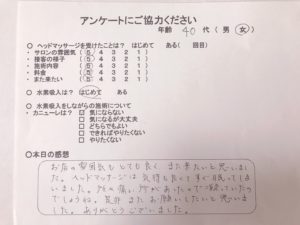 アンケートにご協力ください
年齢 40 代 ( 男 女 )
○ ヘッドマッサージを受けたことは? はじめて ある( 回目)
・サロンの雰囲気 5 4 3 2 1
・接客の様子 5 4 3 2 1
・施術内容 5 4 3 2 1
・料金 5 4 3 2 1
・また来たい 5 4 3 2 1
○ 水素吸入は? はじめて ある
○ 水素吸入をしながらの施術について
・カニューレは? 気にならない
気になるが大丈夫
どちらでもよい
できればやりたくない
やりたくない
○本日の感想
お店の雰囲気もとても良く また来たいと思いまし
た。ヘッドマッサージは 気持ちよくて すぐ眠ってし
まいました。所々痛い所があったので ていたの
でしょうね。是非 またお願いしたいと思いま
した。ありがとうございました。